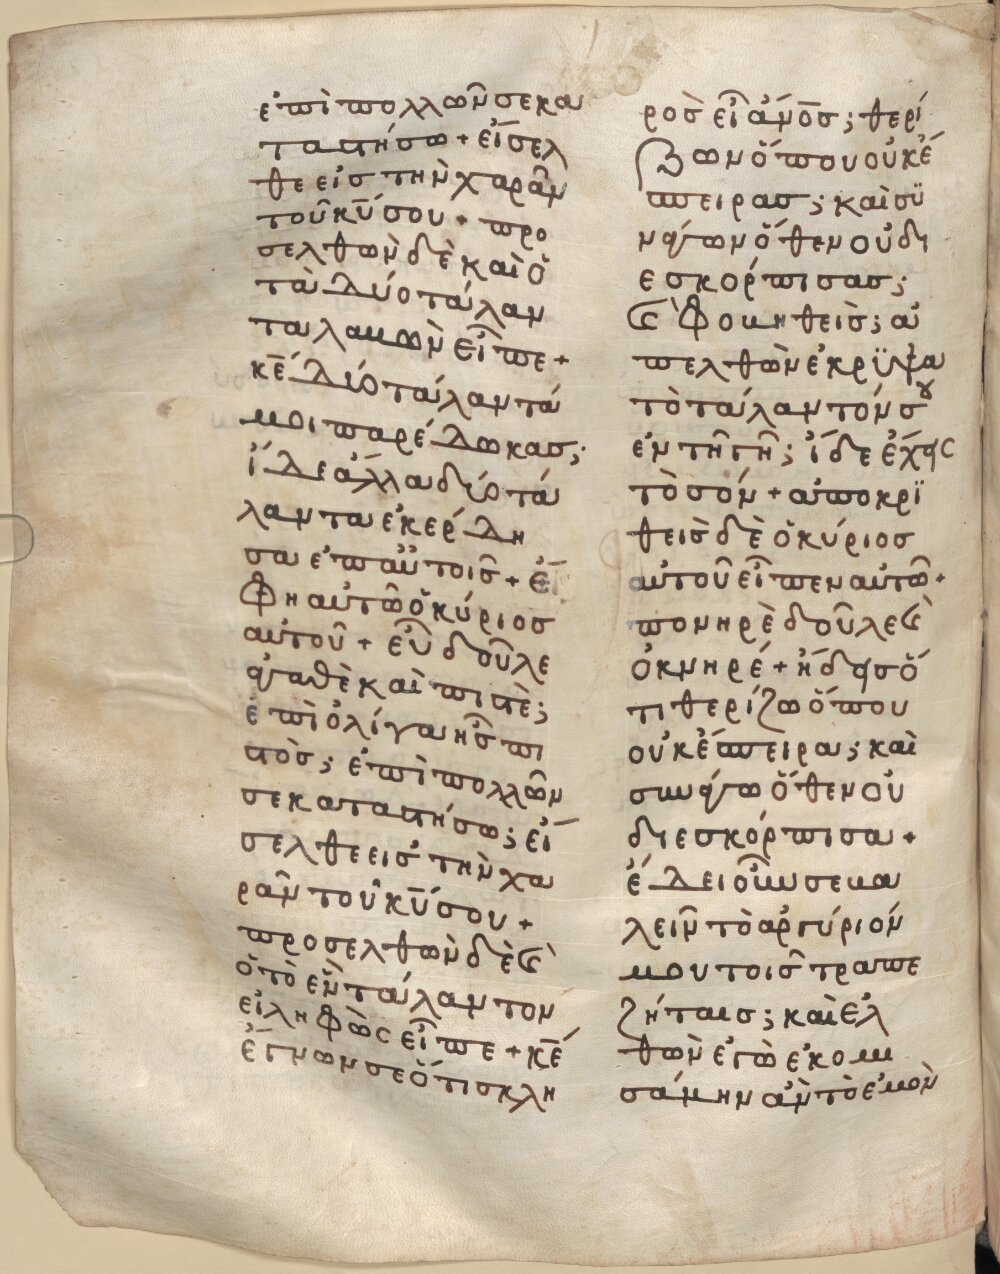 ἐπὶ πολλῶν σε κα
ταστήσω + εἴσελ
θε εἰς τὴν χαρὰν
τοῦ κ̅υ̅ σου + προ
σελθὼν δὲ καὶ ὁ
τὰ δύο τάλαν
τα λαβὼν εἶπε +
κ̅ε̅ δύο τάλαντά
μοι παρέδωκας;
ἴδε ἄλλα δύο τά
λαντα ἐκέρδη
σα ἐπ αὐτοῖς + ἔ
φη αὐτῶ ὁ κύριος
αὐτοῦ + εὖ δοῦλε
ἀγαθὲ καὶ πιστέ;
ἐπὶ ὀλίγα ἦς πι
στός; ἐπὶ πολλῶν
σε καταστήσω; εἴ
σελθε εἰς τὴν χα
ρὰν τοῦ κ̅υ̅ σου +
προσελθὼν δὲ ϗ
ὁ τὸ ἓν τάλαντον
εἰληφὼς εἶπε + κ̅ε̅
ἔγνων σε ὅτι σκλη
ρὸς εἶ ἄν̅ο̅ς̅; θερί
ζων ὅπου οὐκ ἔ
σπειρας; καὶ συ
νάγων ὅθεν οὐ δι
εσκόρπισας;
ϗ φοβηθείς; ἀ
πελθὼν ἔκρυψα
τὸ τάλαντόν σου
ἐν τῆ γῆ; ἴδε ἔχεις
τὸ σόν + ἀποκρι
θεὶς δὲ ὁ κύριος
αὐτοῦ εἶπεν αὐτῶ +
πονηρὲ δοῦλε ϗ
ὀκνηρέ + ἤδεις ὅ
τι θερίζω ὅπου
οὐκ ἔσπειρα; καὶ
συνάγω ὅθεν οὐ
διεσκόρπισα +
ἔδει οὖν σε βα
λεῖν τὸ ἀργύριόν
μου τοῖς τραπε
ζήταις; καὶ ἐλ
θὼν ἐγὼ ἐκομι
σάμην ἂν τὸ ἐμὸν